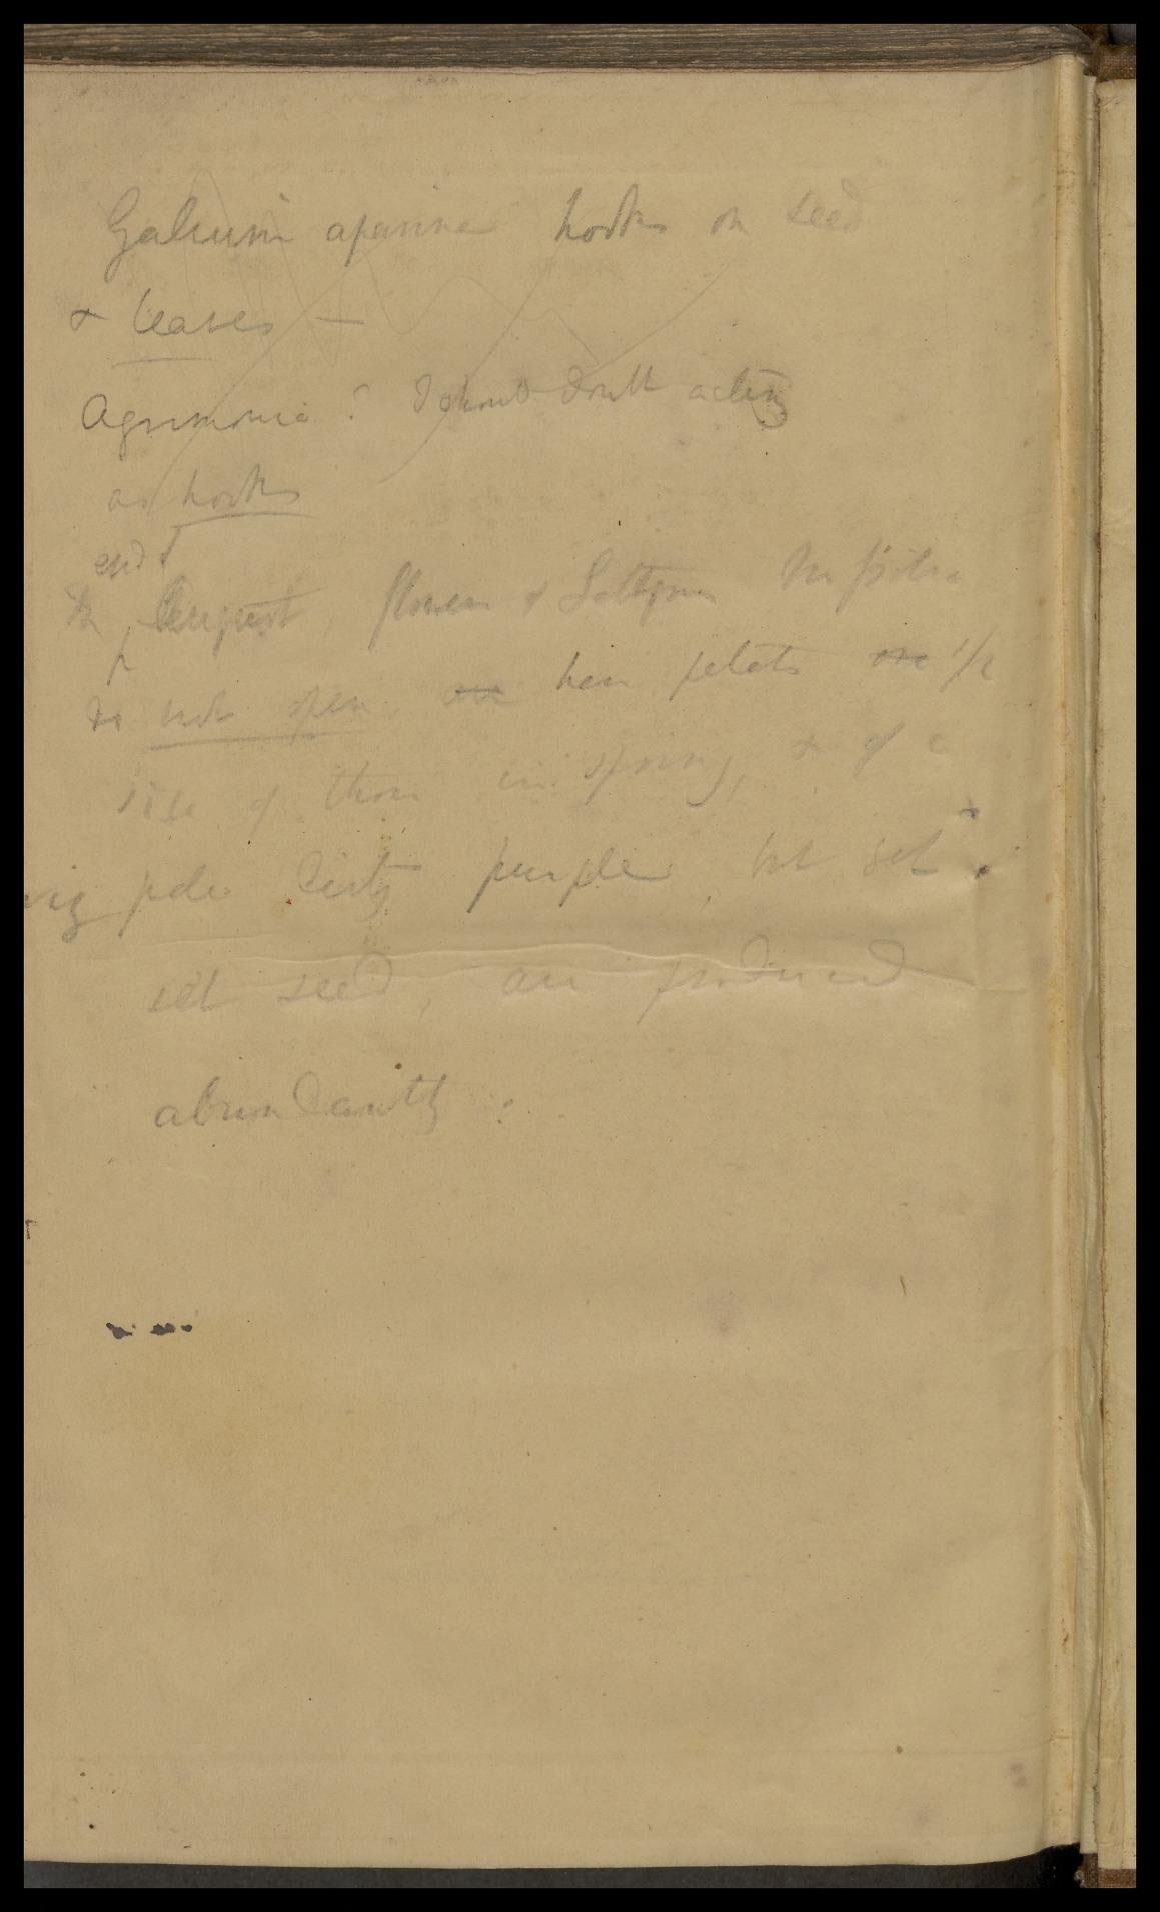 Galium aparine hooks on seed
& leaves —
Agrimonia? I should doubt acting
as hooks
end of
In August, flowers of
do not open, have petals 1/2
size of those in spring, & of a
pale dirty purple, but set
set seed, are produced
abundantly.